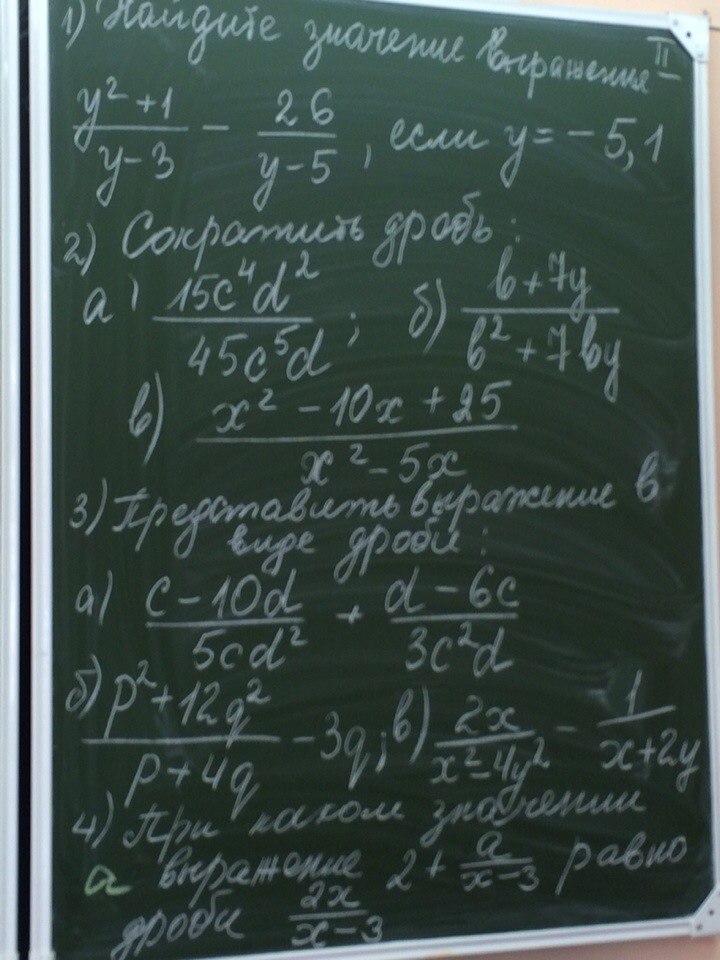 1) Найдите значение выражения II
(y² + 1)/(y - 3) - 26/(y - 5), если y = -5,1
2) Сократить дробь:
а) 15c⁴d²/45c⁵d; б) (b + 7y)/(b² + 7by)
в) (x² - 10x + 25)/(x² - 5x)
3) Представить выражение в
виде дроби:
а) (c - 10d)/5cd² + (d - 6c)/3c²d
б) (p² + 12q²)/(p + 4q) - 3q; в) 2x/(x² - 4y²) - 1/(x + 2y)
4) При каком значении
a выражение 2 + a/(x - 3) равно
дроби 2x/(x - 3)